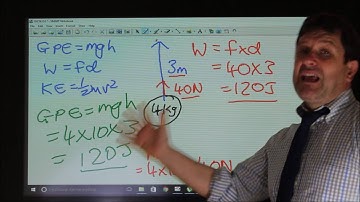 GPE = mgh
W = fd
KE = ½mv²
GPE = mgh
= 4x10x3
= 120J
3m
40N
4kg
W = fxd
= 40x3
= 120J